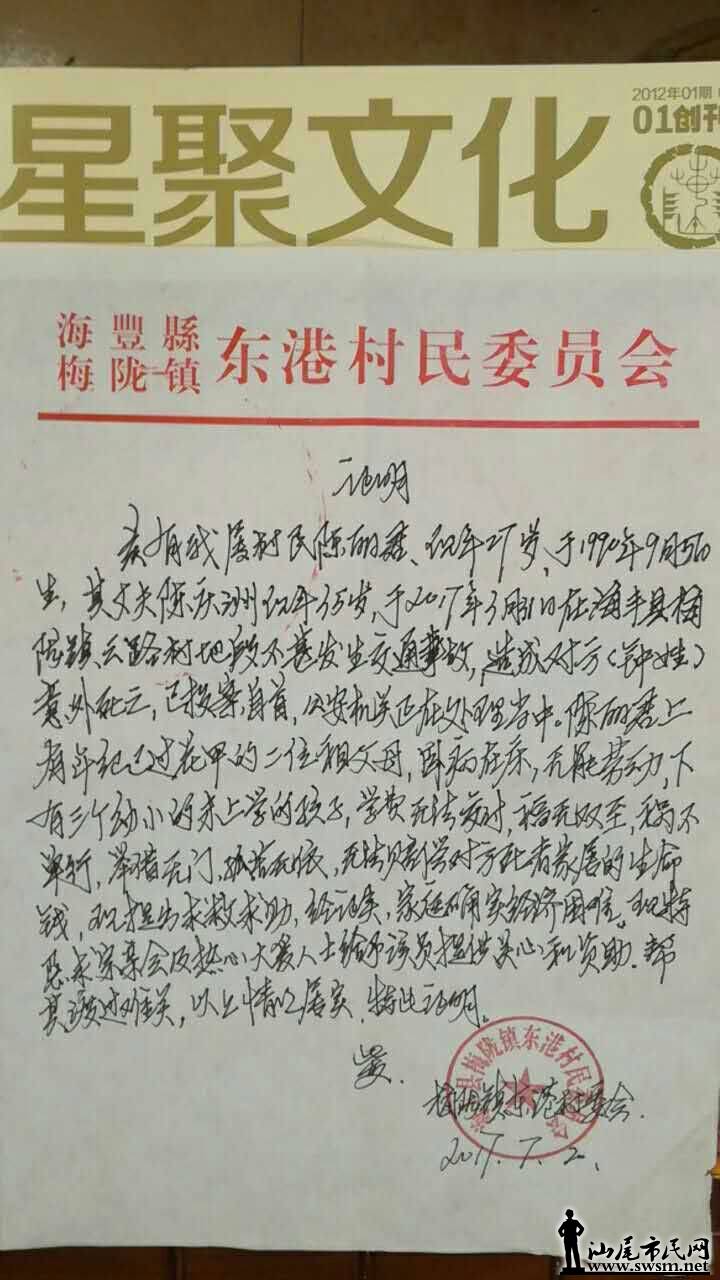 星聚文化
2012年01期
01创刊
海豐縣
梅陇镇
东港村民委员会
证明
兹有我属村民陈丽君、现年27岁、于1990年9月
生，其丈夫陈庆洲现年35岁，于2017年3月31日在海丰县梅
陇镇云路村地段不甚发生交通事故，造成对方（钟姓）
意外死亡，已投案自首，公安机关正在处理当中。陈丽君上
有年纪已过花甲的二位祖父母，卧病在床，无能劳动，下
有三个幼小的未上学的孩子，学费无法应付，福无双至，祸不
单行，举借无门，孤苦无依，无法赔偿对方死者家属的生命
钱，现提出求救求助，经证实，家庭确实经济困难。现特
恳求慈善会及热心大爱人士给予该员提供关心和资助．帮
其渡过难关，以上情况属实．特此证明。
梅陇镇东港村委会．
2017.7.2.
县梅陇镇东港村民
汕尾市民网
www.swsm.net